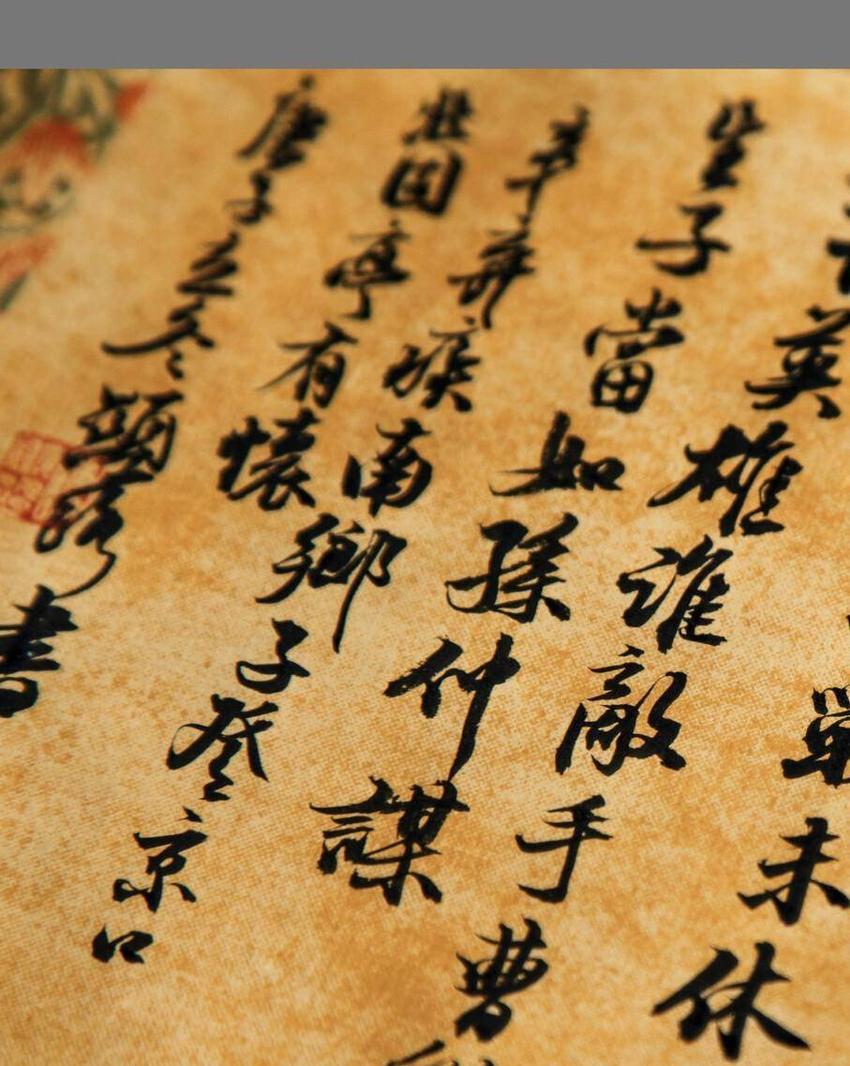 戰未休
英雄誰敵手曹
生子當如孫仲謀
辛弃疾南鄉子登京口
北固亭有懷
庚子立冬
書